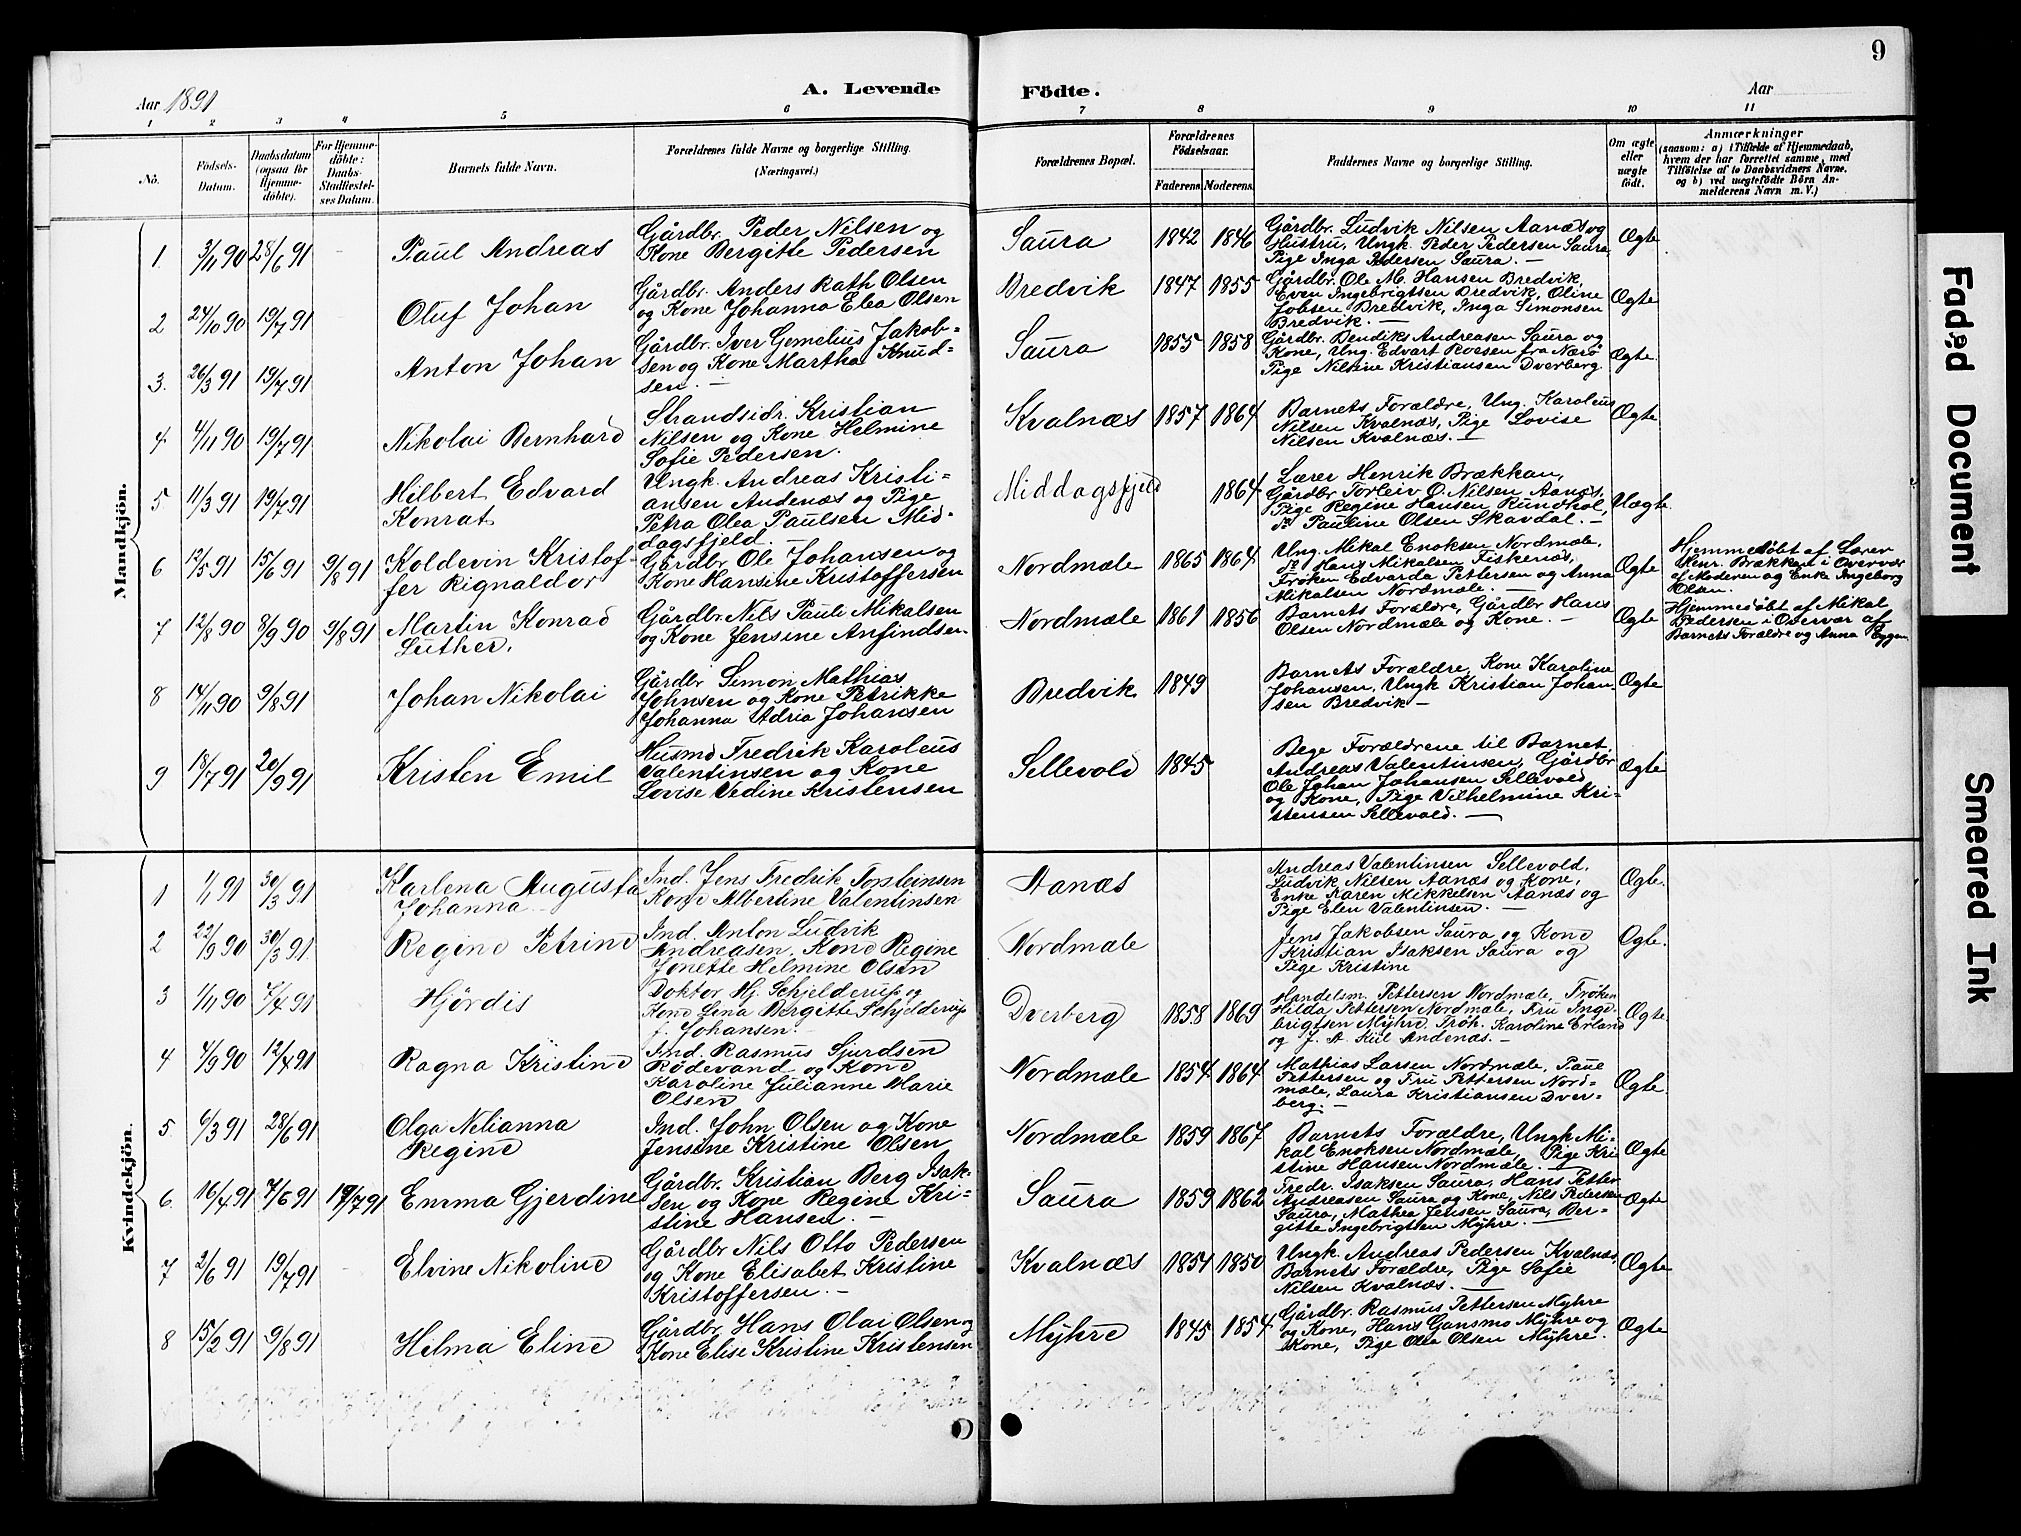 9
Aar 1891
A. Levende
Födte.
Aar
1 2 3 4 5 6 7 8 9 10 11
No.
Födsels-Datum.
Daabsdatum (ogsaa for Hjemme-döbte).
For Hjemme-döbte: Daabs-Stadfæstel-ses Datum.
Barnets fulde Navn.
Forældrenes fulde Navne og borgerlige Stilling.
(Næringsvei.)
Forældrenes Bopæl.
Forældrenes Födselsaar.
Faderens. Moderens.
Faddernes Navne og borgerlige Stilling.
Om ægte eller uægte födt.
Anmærkninger
(saasom: a) i Tilfælde af Hjemmedaab,
hvem der har forrettet samme, med
Tilföielse af to Daabsvidners Navne.
og b) ved uægtefödte Börn An-
melderens Navn m. V.)
Mandkjön.
1 3/11 90 28/6 91 Paul Andreas
Gårdbr. Peder Nilsen og
Kone Bergitte Pedersen
Saura 1842 1846
Gårdbr. Ludvik Nilsen Aanæs og
Hustru, Ungk. Peder Pedersen Saura
Pige Inga Pedersen Saura. —
Ægte
2 24/10 90 19/7 91 Oluf Johan
Gårdbr. Anders Rath Olsen
og Kone Johanna Elea Olsen
Bredvik 1847 1855
Gårdbr. Ole M. Hansen Bredvik,
Even Ingebrigtsen Bredvik, Oline
Jobsen Bredvik, Inga Simonsen
Bredvik. —
Ægte
3. 26/3 91 19/7 91 Anton Johan
Gårdbr. Iver Cornelius Jakob-
sen og Kone Martha Knud-
sen. —
Saura 1855 1858
Gårdbr. Bendiks Andreasen Saura og
Kone, Ung. Edvart Roesen fra Nærö
Pige Nilsine Kristiansen Dverberg.
Ægte
4 4/11 90 19/7 91 Nikolai Bernhard
Strandsidr. Kristian
Nilsen og Kone Helmine
Sofie Pedersen.
Kvalnæs 1857 1864
Barnets Forældre, Ung. Karoleus
Nilsen Kvalnæs, Pige Lovise
Nilsen Kvalnæs. —
Ægte
5 11/3 91 19/7 91 Hilbert Edvard
Konrat
Ungk. Andreas Kristi-
ansen Andenæs og Pige
Petra Olea Paulsen Mid-
dagsfjeld. —
Middagsfjeld 1864
Lærer Henrik Brækkan,
Gårdbr Torleiv O. Nilsen Aanæs,
Pige Regine Hansen Rundhol,
do Pauline Olsen Skavdal. —
Uægte
6 12/5 91 15/6 91 9/8 91 Koldevin Kristof-
fer Rignaldor
Gårdbr. Ole Johansen og
Kone Hansine Kristoffersen
Nordmæle 1865 1864
Ung. Mikal Enoksen Nordmæle,
do Hans Mikalsen Fiskenæs,
Fröken Edvarda Pettersen og Anna
Mikalsen Nordmæle. —
Ægte
Hjemmedöbt af Lærer
Henr. Brækkan i Overvær
af Moderen og Enke Ingeborg
Olsen.
7 12/8 90 8/9 90 9/8 91 Martin Konrad
Luther.
Gårdbr. Nils Pauli Mikalsen
og Kone Jensine Anfindsen
Nordmæle 1861 1856
Barnets Forældre, Gårdbr Hans
Olsen Nordmæle og Kone. —
Ægte
Hjemmedöbt af Mikal
Pedersen i Overvær af
Barnets Forældre og Anna Eggen
8 14/11 90 9/8 91 Johan Nikolai
Gårdbr Simon Mathias
Johnsen og Kone Petrikke
Johanna Adria Johansen
Bredvik 1849
Barnets Forældre, Kone Karoline
Johansen, Ungk Kristian Johan-
sen Bredvik —
Ægte
9 18/7 91 20/9 91 Kristen Emil
Husmd Fredrik Karoleus
Valentinsen og Kone
Lovise Vedine Kristensen
Sellevold 1845
Bege Forældrene til Barnet,
Andreas Valentinsen, Gårdbr
Ole Johan Johansen Sellevold
og Kone, Pige Vilhelmine Kri-
stensen Sellevold. —
Ægte
Kvindekjön.
1 1/1 91 30/3 91 Karlena Augusta
Johanna —
Ind. Jens Fredrik Torsteinsen
Kone Albertine Valentinsen
Aanæs
Andreas Valentinsen Sellevold,
Ludvik Nilsen Aanæs og Kone,
Enke Karen Mikkelsen Aanæs og
Pige Elen Valentinsen. —
Ægte.
2 22/9 90 30/3 91 Regine Petrine
Ind. Anton Ludvik
Andreasen, Kone Regine
Jonette Helmine Olsen
Nordmæle
Jens Jakobsen Saura og Kone
Kristian Isaksen Saura og
Pige Kristine
Ægte.
3 1/11 90 7/4 91 Hjördis
Doktor Hj. Schjelderup og
Kone Lina Bergitte Schjelderup
f. Johansen. —
Dverberg 1858 1869
Handelsm. Pettersen Nordmæle, Fröken
Hilda Pettersen Nordmæle, Fru Inge-
brigtsen Myhre, Fröh. Karoline Erland
og J. A. Kiil Andenæs. —
Ægte
4 4/9 90 12/4 91 Ragna Kristine
Ind. Rasmus Sjurdsen
Rödevand og Kone
Karoline Julianne Marie
Olsen
Nordmæle 1854 1864
Mathias Larsen Nordmæle, Paul
Pettersen og Fru Pettersen Nord-
mæle, Laura Kristiansen Dver-
berg. —
Ægte.
5 6/3 91 28/6 91 Olga Nelianna
Regine
Ind. John Olsen og Kone
Jensine Kristine Olsen
Nordmæle 1859 1867
Barnets Forældre, Ungk Mi-
kal Enoksen Nordmæle, Pige Kri
stine Hansen Nordmæle. —
Ægte
6 16/4 91 7/6 91 19/7 91 Emma Gjerdine
Gårdbr. Kristian Berg Isak-
sen og Kone Regine Kri-
stine Hansen. —
Saura 1859 1862
Fredr. Isaksen Saura, Hans Petter
Andreasen Saura og Kone, Nils Pedersen
Saura, Mathea Jensen Saura, Ber-
gitte Ingebrigtsen Myhre. —
Ægte
7 2/6 91 19/7 91 Elvine Nikoline
Gårdbr Nils Otto Pedersen
og Kone Elisabet Kristine
Kristoffersen. —
Kvalnæs 1854 1850
Ungk. Andreas Pedersen Kvalnæs,
Barnets Forældre, Pige Sofie
Nilsen Kvalnæs. —
Ægte
8 15/2 91 9/8 91 Helma Eline
Gårdbr Hans Olai Olsen og
Kone Elise Kristine Kristensen
Myhre 1845 1854
Gårdbr. Rasmus Pettersen Myhre
og Kone, Hans Gansmo Myhre og
Kone, Pige Olea Olsen Myhre.
Ægte
Faded Document
Smeared Ink